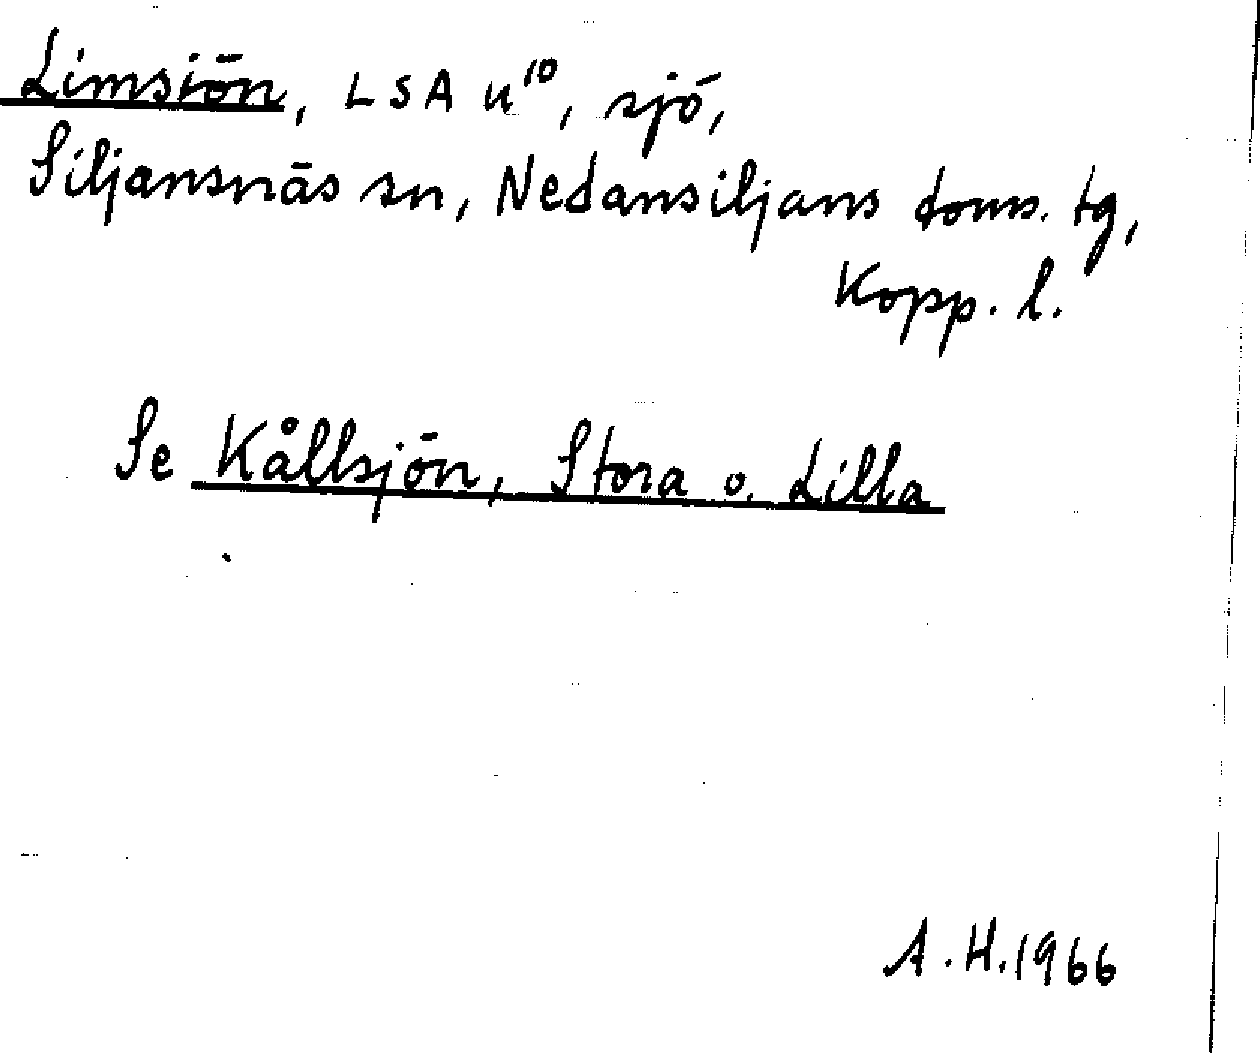 Limsiön, LSA u¹⁰, sjö,
Siljansnäs sn, Nedansiljans doms. tg,
Kopp. l.
Se Kållsjön, Stora o. Lilla
A.H. 1966